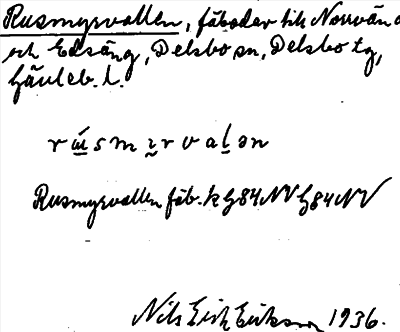 Rusmyrvallen, fäbodar till Norrväna
och Edsäng, Delsbo sn, Delsbo tg,
Gävleb. l.
Rusmyrvallen fäb. k G84NV G84NV
Nils Erik Eriksson 1936.